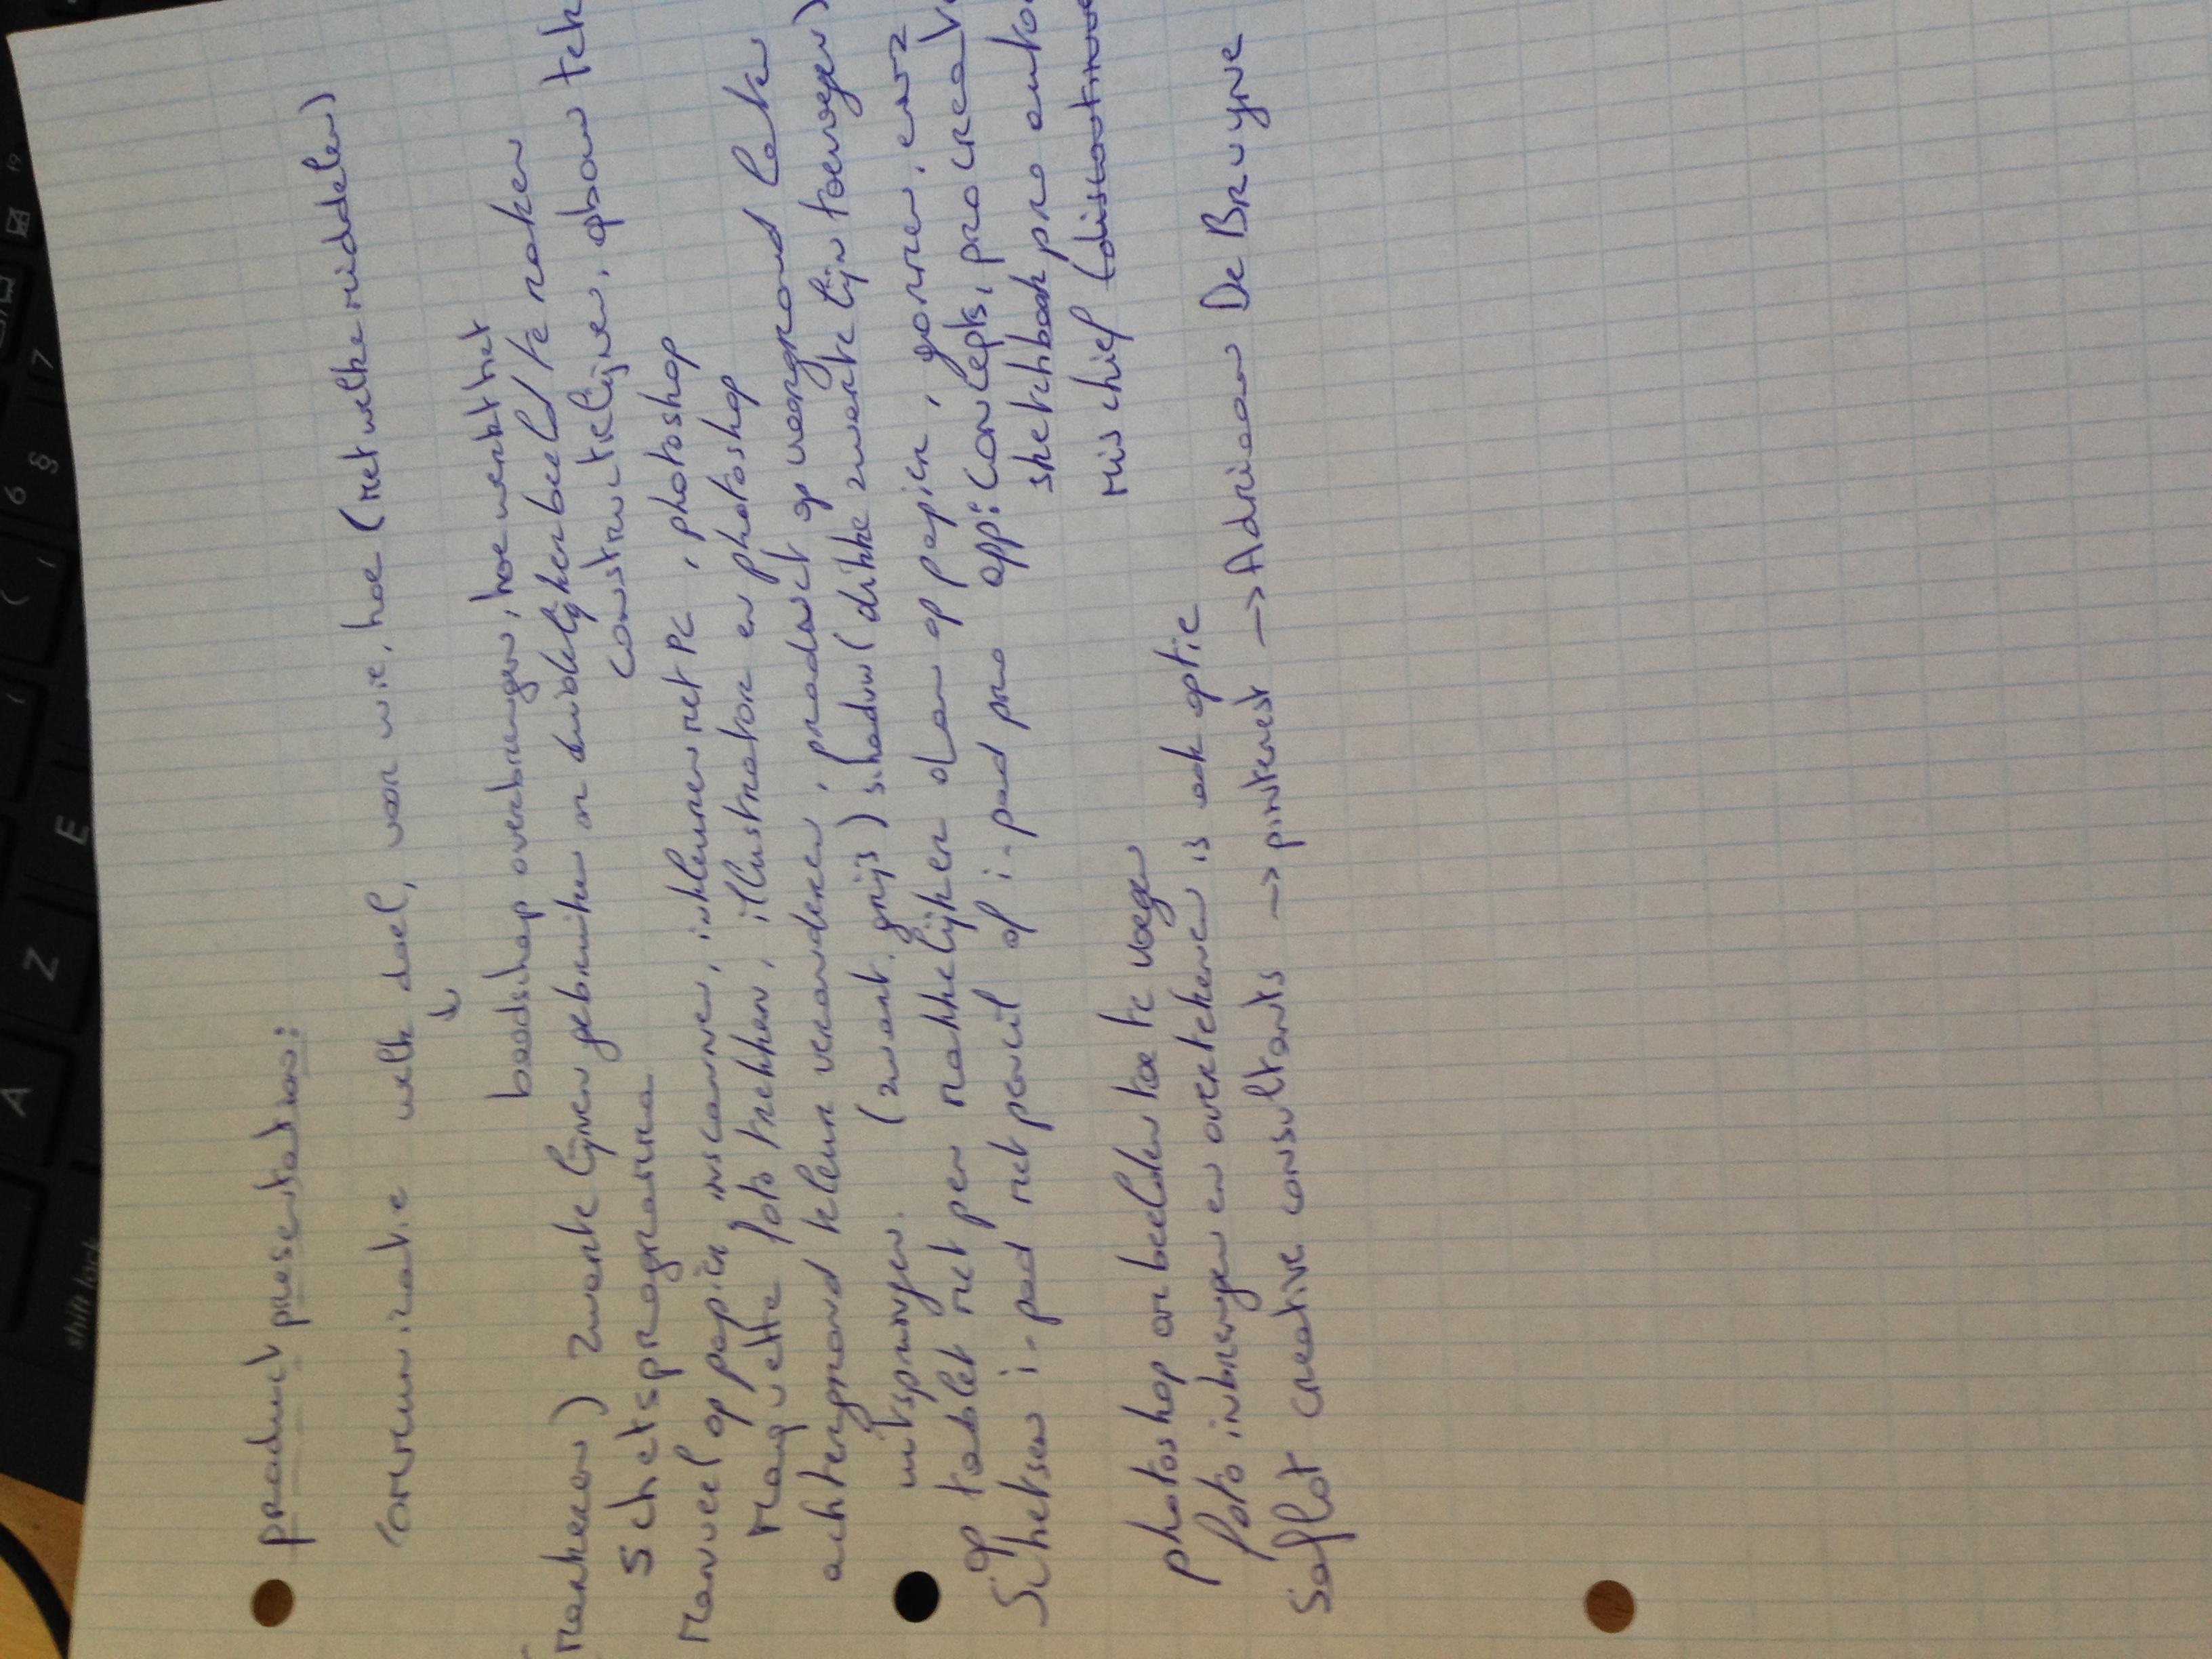 A
Z
E
6
§
7
19
shift lock
product presentation:
communicatie welk doel, voor wie, hoe (met welke middelen)
↓
boodschap overbrengen, hoe werkt het
markeren) zwarte lijnen gebruiken om duidelijker beeld te maken
schetsprogramma constructielijnen, opbouw tek
Manueel op papier, inscannen, inkleuren met PC, photoshop
Maquette foto trekken, illustrator en photoshop
achtergrond kleur veranderen, product op voorgrond laten
uitspringen. (zwart, grijs) schaduw (dikke zwarte lijn toevoegen)
op tablet met pen makkelijker dan op papier, gommen, enz
Schetsen i-pad met pencil of i-pad pro app: Concepts, procreate
sketchbook pro auto
mischief (discontinue
photoshop om beelden toe te voegen
foto inbrengen en overtekenen is ook optie
Saflot creative consultants -> pinterest -> Adriaan De Bruyne